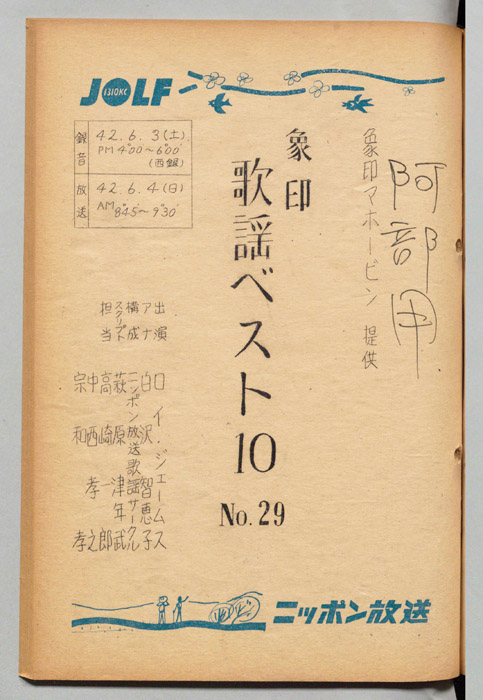 JOLF
1310KC
録音 42.6.3(土)
PM 4°00'~6°00'
(西銀)
放送 42.6.4(日)
AM 8°45'~9°30'
阿部用
象印マホービン 提供
象印
歌謡ベスト10
No.29
出演 ロイ・ジェームス
アナ 白沢智恵子
構成 ニッポン放送歌謡サークル
萩原津年武
スクリプト 高崎一郎
担当 中西孝之
宗和孝
ニッポン放送